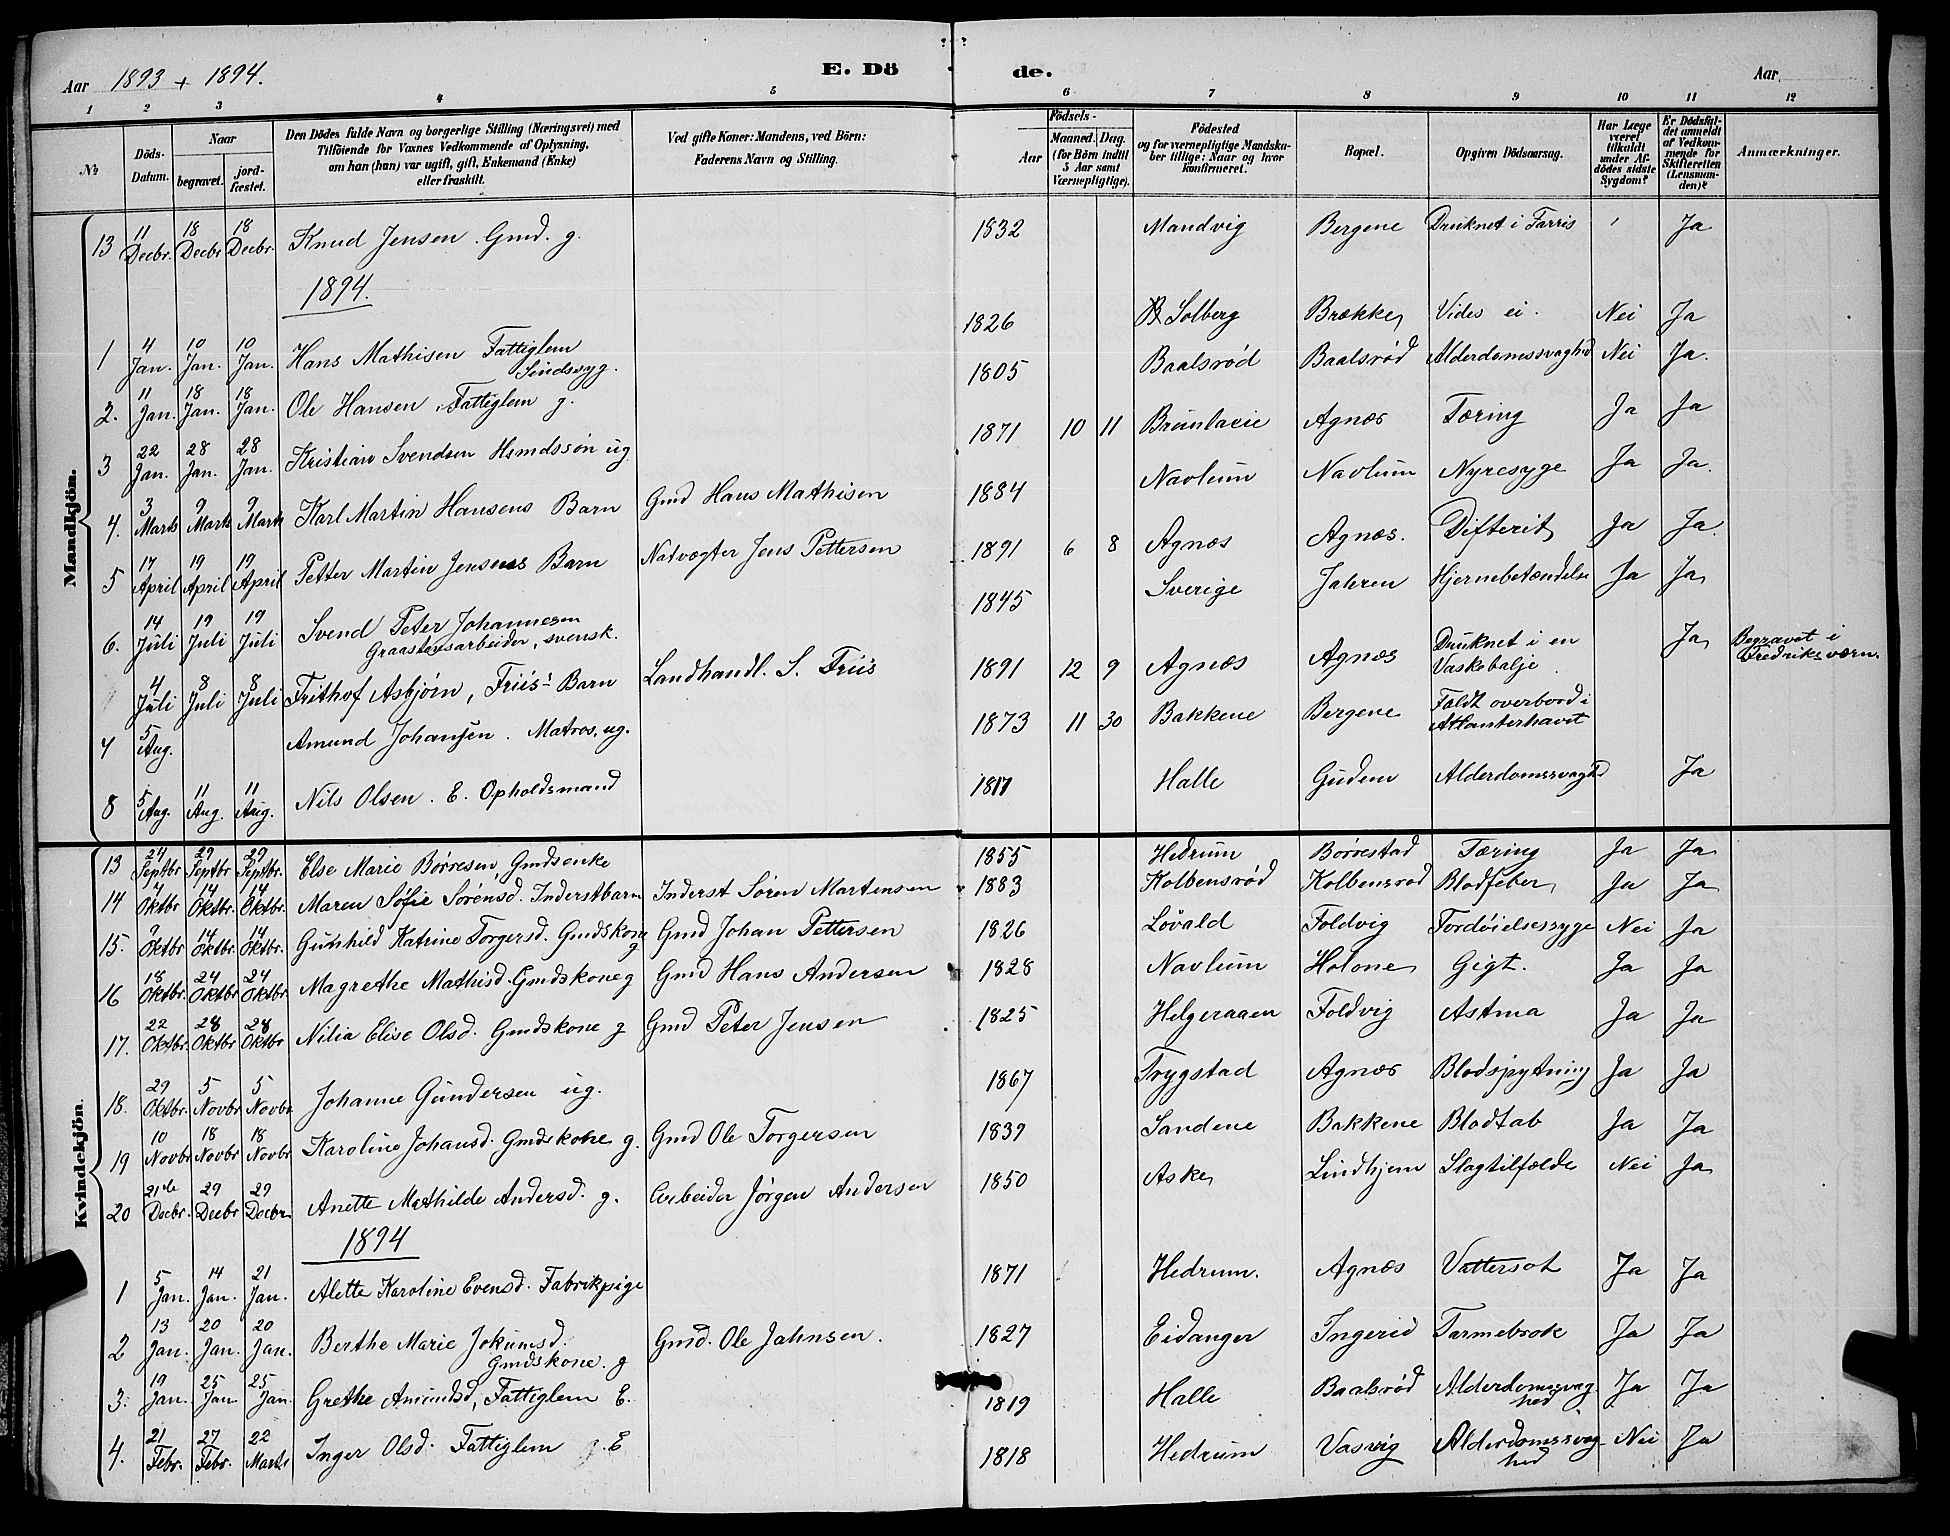 Aar 1893 + 1894. E. Dö de. Aar
1 2 3 4 5 6 7 8 9 10 11 12
№ Döds-Datum. Naar begravet. jord-fæstet. Den Dödes fulde Navn og borgerlige Stilling (Næringsvei) med Tilföiende for Voxnes Vedkommende af Oplysning, om han (hun) var ugift, gift, Enkemand (Enke) eller fraskilt. Ved gifte Koner: Mandens, ved Börn: Faderens Navn og Stilling. Födsels- Aar Maaned. Dag. (for Börn indtil 5 Aar samt Værnepligtige). Födested og for værnepligtige Mandskaber tillige: Naar og hvor konfirmeret. Bopæl. Opgiven Dödsaarsag. Har Læge været tilkaldt under Afdödes sidste Sygdom? Er Dödsfaldet anmeldt af Vedkommende for Skifteretten (Lensmanden)? Anmærkninger.
Mandkjön.
13 11 Decbr. 18 Decbr 18 Decbr. Knud Jensen. Gmd. g. 1832 Mandvig Bergene Druknet i Farris Ja
1894.
1 4 Jan. 10 Jan. 10 Jan. Hans Mathisen Fattiglem Sindssyg. 1826 Solberg Brække Vides ei. Nei Ja
2. 11 Jan. 18 Jan. 18 Jan. Ole Hansen, Fattiglem g. 1805 Baalsrød Baalsrød Alderdomssvaghed Nei Ja.
3 22 Jan. 28 Jan. 28 Jan. Kristian Svendsen Hsmdssøn ug. 1871 10 11 Brunlaeie Agnæs Tæring Ja Ja
4. 3 Marts 9 Marts 9 Marts Karl Martin Hansens Barn Gmd Hans Mathisen 1884 Navlum Navlum Nyresyge Ja Ja.
5 17 April 19 April 19 April Petter Martin Jensens Barn Natvogter Jens Pettersen 1891 6 8 Agnæs Agnæs. Difterit Ja Ja.
6. 14 Juli 19 Juli 19 Juli Svend Peter Johannesen Graastensarbeider, svensk. 1845 Sverige Jahren Hjernebetændelse Ja Ja
4 Juli 8 Juli 8 Juli Frithof Asbjørn, Friis' Barn Landhandl. S. Friis 1891 12 9 Agnæs Agnæs Druknet i en Vaskebalje. Ja Begravet i Fredriksværn.
7 5 Aug. Amund Johansen. Matros, ug. 1873 11 30 Bakkene Bergene Faldt overbord i Atlanterhavet
8 5 Aug. 11 Aug. 11 Aug. Nils Olsen. E. Opholdsmand 1817 Halle Gudem Alderdomssvaghd Ja
Kvindekjön.
13 24 Septbr 29 Septbr 29 Septbr. Else Marie Børresen, Gmdsenke 1855 Hedrum Børrestad Tæring Ja Ja
14 7 Oktbr 14 Oktbr. 14 Oktbr. Maren Sofie Sørensd. Inderstbarn Inderst Søren Martensen 1883 Kolbensrød Kolbensrød Blodfeber Ja Ja
15. 9 Oktbr 14 Oktbr. 14 Oktbr. Gunhild Katrine Torgersd. Gmdskone g Gmd Johan Pettersen 1826 Løvald Foldvig Fordøielsessyge Nei Ja
16 18 Oktbr. 24 Oktbr 24 Oktbr. Magrethe Mathisd. Gmdskone g Gmd Hans Andersen 1828 Navlum Holone Gigt. Ja Ja
17. 22 Oktbr. 28 Oktbr 28 Oktbr Nilia Elise Olsd. Gmdskone g Gmd Peter Jensen 1825 Helgeraaen Foldvig Astma Ja Ja
18. 29 Oktbr. 5 Novbr 5 Novbr Johanne Gundersen ug. 1867 Trygstad Agnæs Blodspytning Ja Ja
19 10 Novbr 18 Novbr 18 Novbr Karoline Johansd. Gmdskone g. Gmd Ole Torgersen 1839 Sandene Bakkene Blodtab Ja Ja
20 21de Decbr. 29 Decbr 29 Decbr Anette Mathilde Andersd. g. Arbeider Jørgen Andersen 1850 Aske Lindhjem Slagtilfælde Nei Ja
1894
1 5 Jan. 14 Jan. 21 Jan. Alette Karoline Evensd. Fabrikpige 1871 Hedrum. Agnæs Vattersot Ja Ja
2 13 Jan. 20 Jan. 20 Jan. Berthe Marie Jokumsd. Gmdskone. g Gmd. Ole Jahnsen. 1827 Eidanger Ingerid Tarmebrok Ja Ja
3. 19 Jan. 25 Jan 25 Jan Grethe Amundsd, Fattiglem E. 1819 Halle Baalsrød Alderdomssvaghed Ja Ja
4. 21 Febr. 27 Febr. 22 Marts Inger Olsd. Fattiglem E 1818 Hedrum Vasvig Alderdomssvaghed Nei Ja